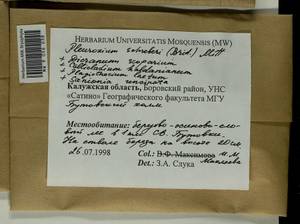 HERBARIUM UNIVERSITATIS MOSQUENSIS (MW)
Pleurozium schreberi (Brid.) Mitt
Dicranum scoparium
Callicladium haldanianum
Plagiothecium laetum
Sanionia uncinata
Калужская область, Боровский район, УНБ
«Сатино» Географического факультета МГУ
Бутовский холм
Местообитание: березово-осиново-ело-
вый лес в 1 км СВ. Бутовки.
На стволе березы на высоте 20 см
26.07.1998 Col.: В.Ф. Максимова
Det.: З.А. Слука